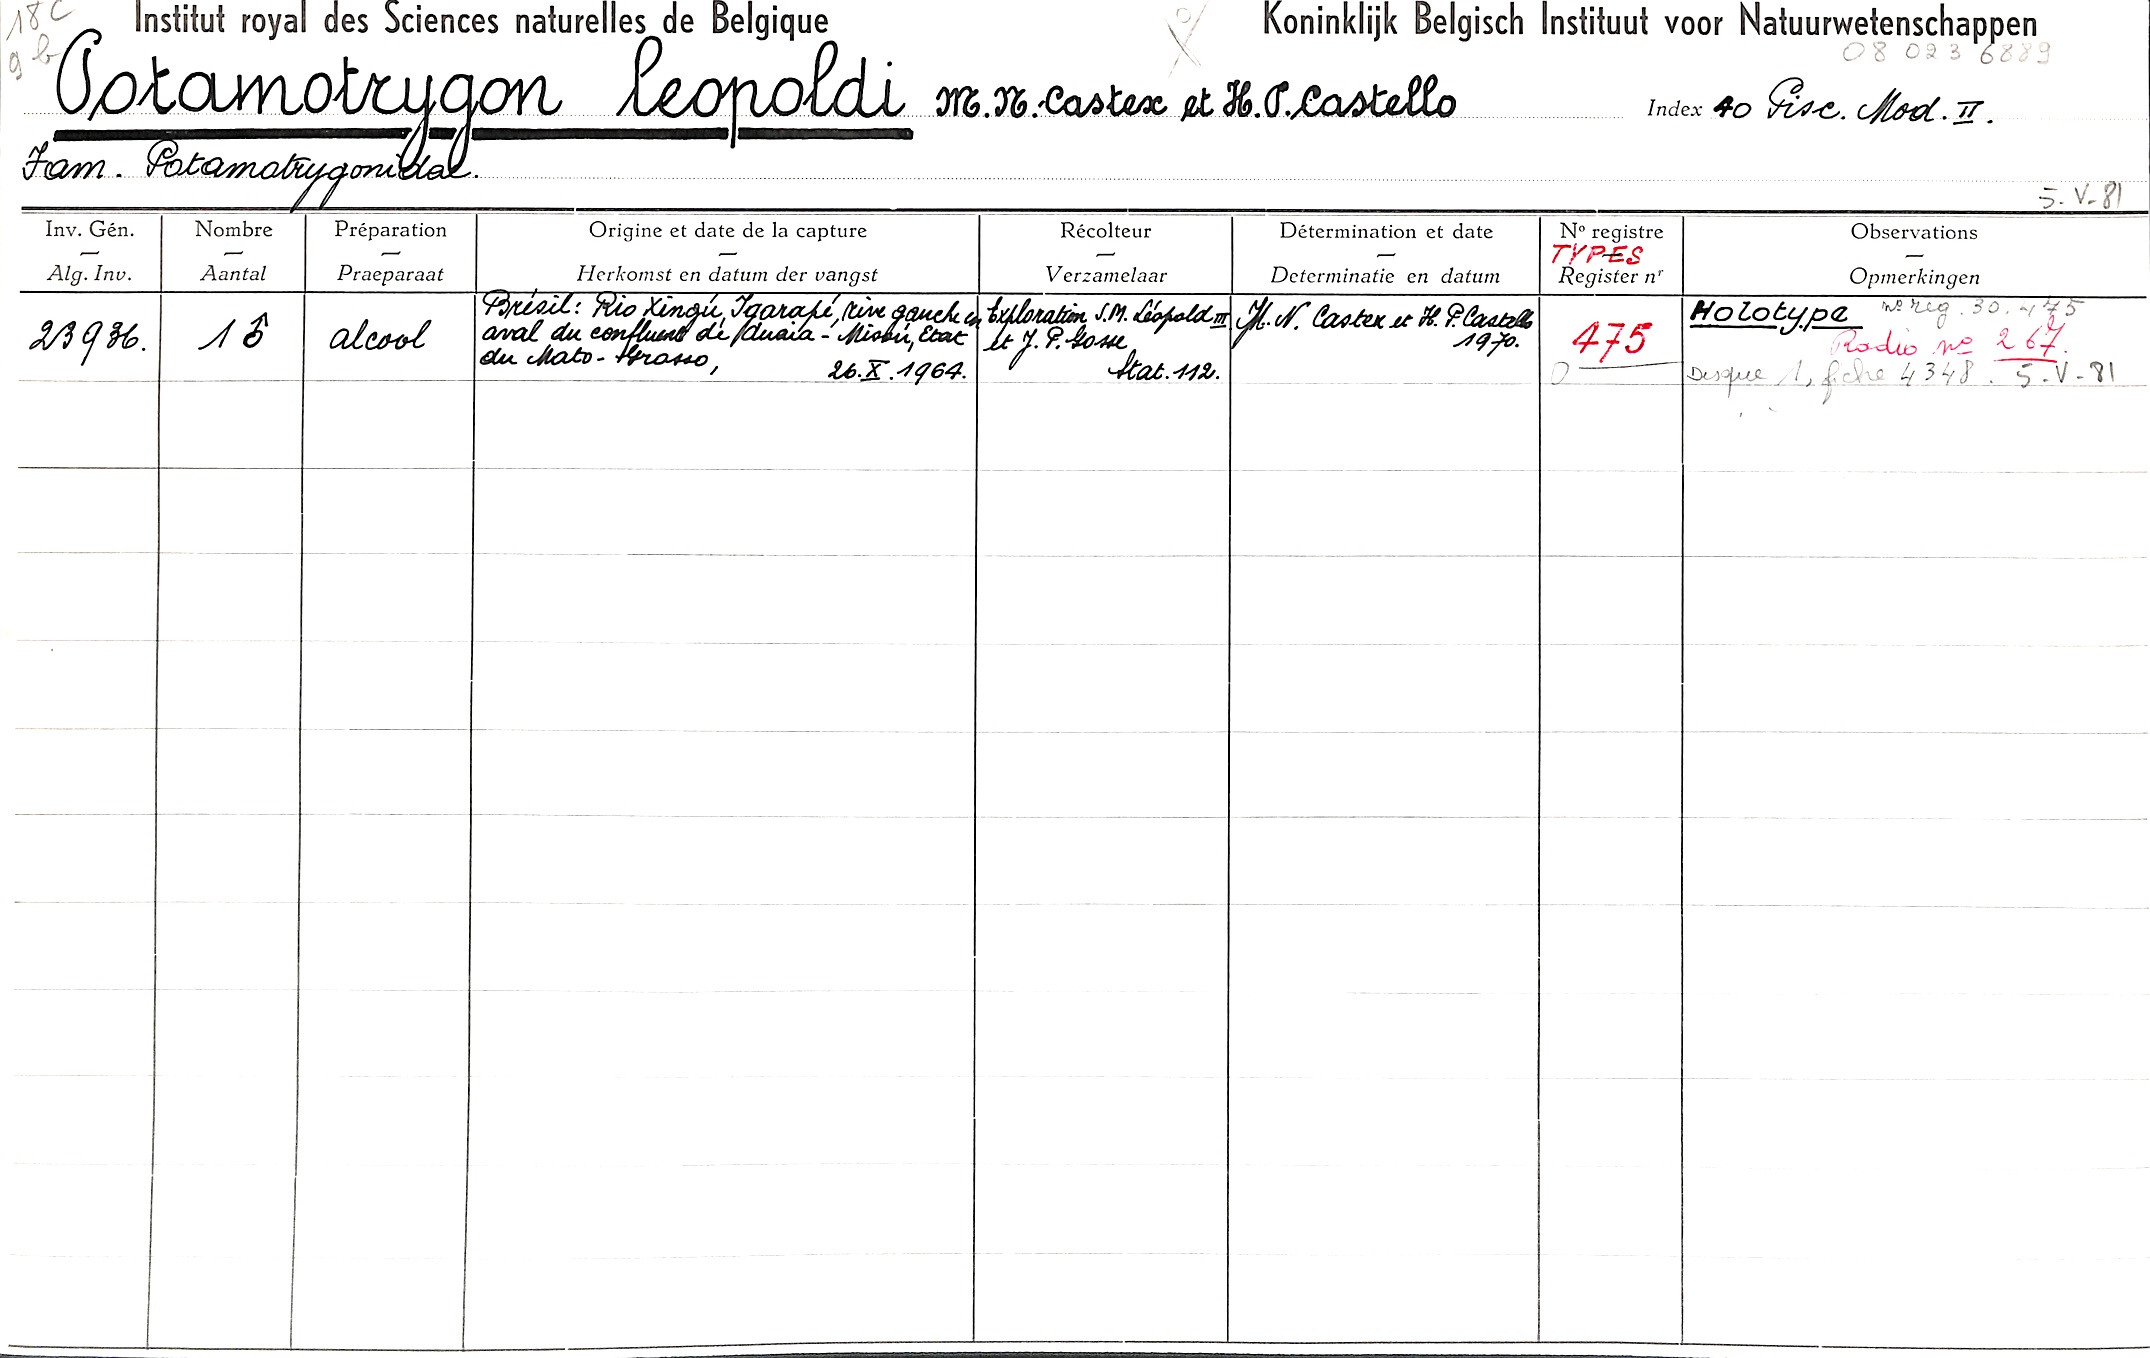 18C
9b
Institut royal des Sciences naturelles de Belgique
Koninklijk Belgisch Instituut voor Natuurwetenschappen
08 023 6889
Potamotrygon leopoldi M.N. Castex et H.P. Castello
Index 40 Pisc. Mod. II.
Fam. Potamotrygonidae.
5-V-81
Inv. Gén.
—
Alg. Inv.
Nombre
—
Aantal
Préparation
—
Praeparaat
Origine et date de la capture
—
Herkomst en datum der vangst
Récolteur
—
Verzamelaar
Détermination et date
—
Determinatie en datum
No registre
TYPES
Register nr
Observations
—
Opmerkingen
23936.
1 ♂
alcool
Brésil: Rio Xingú, Igarapé, rive gauche en
aval du confluent de Suaia-Missú, Etat
du Mato-Grosso,
26.X.1964.
Exploration S.M. Léopold III
et J.P. Gosse
Stat. 112.
M.N. Castex et H.P. Castello
1970.
475
Holotype no reg. 30.475
Radio no 267.
Disque 1, fiche 4348. 5-V-81